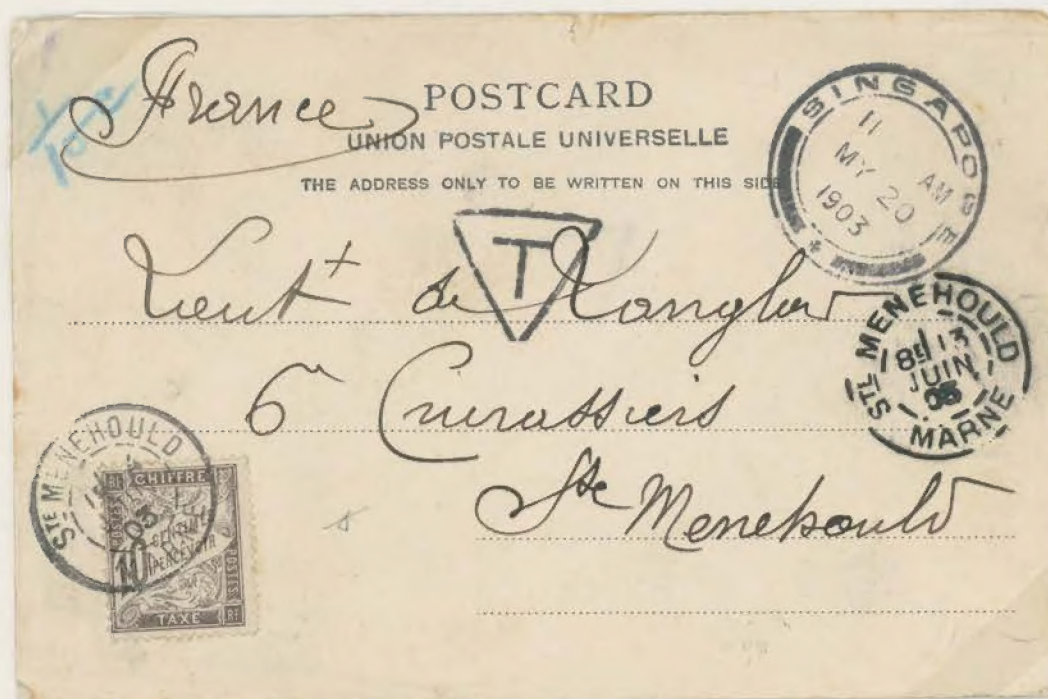 France
POSTCARD
UNION POSTALE UNIVERSELLE
THE ADDRESS ONLY TO BE WRITTEN ON THIS SIDE
SINGAPORE
11 AM
MY 20
1903
T
Lieut de
6e Cuirassiers
Ste Menehould
STE MENEHOULD
13
JUIN
03
MARNE
STE MENEHOULD
03
CHIFFRE
10
CENTIMES
A PERCEVOIR
POSTES
TAXE
RF